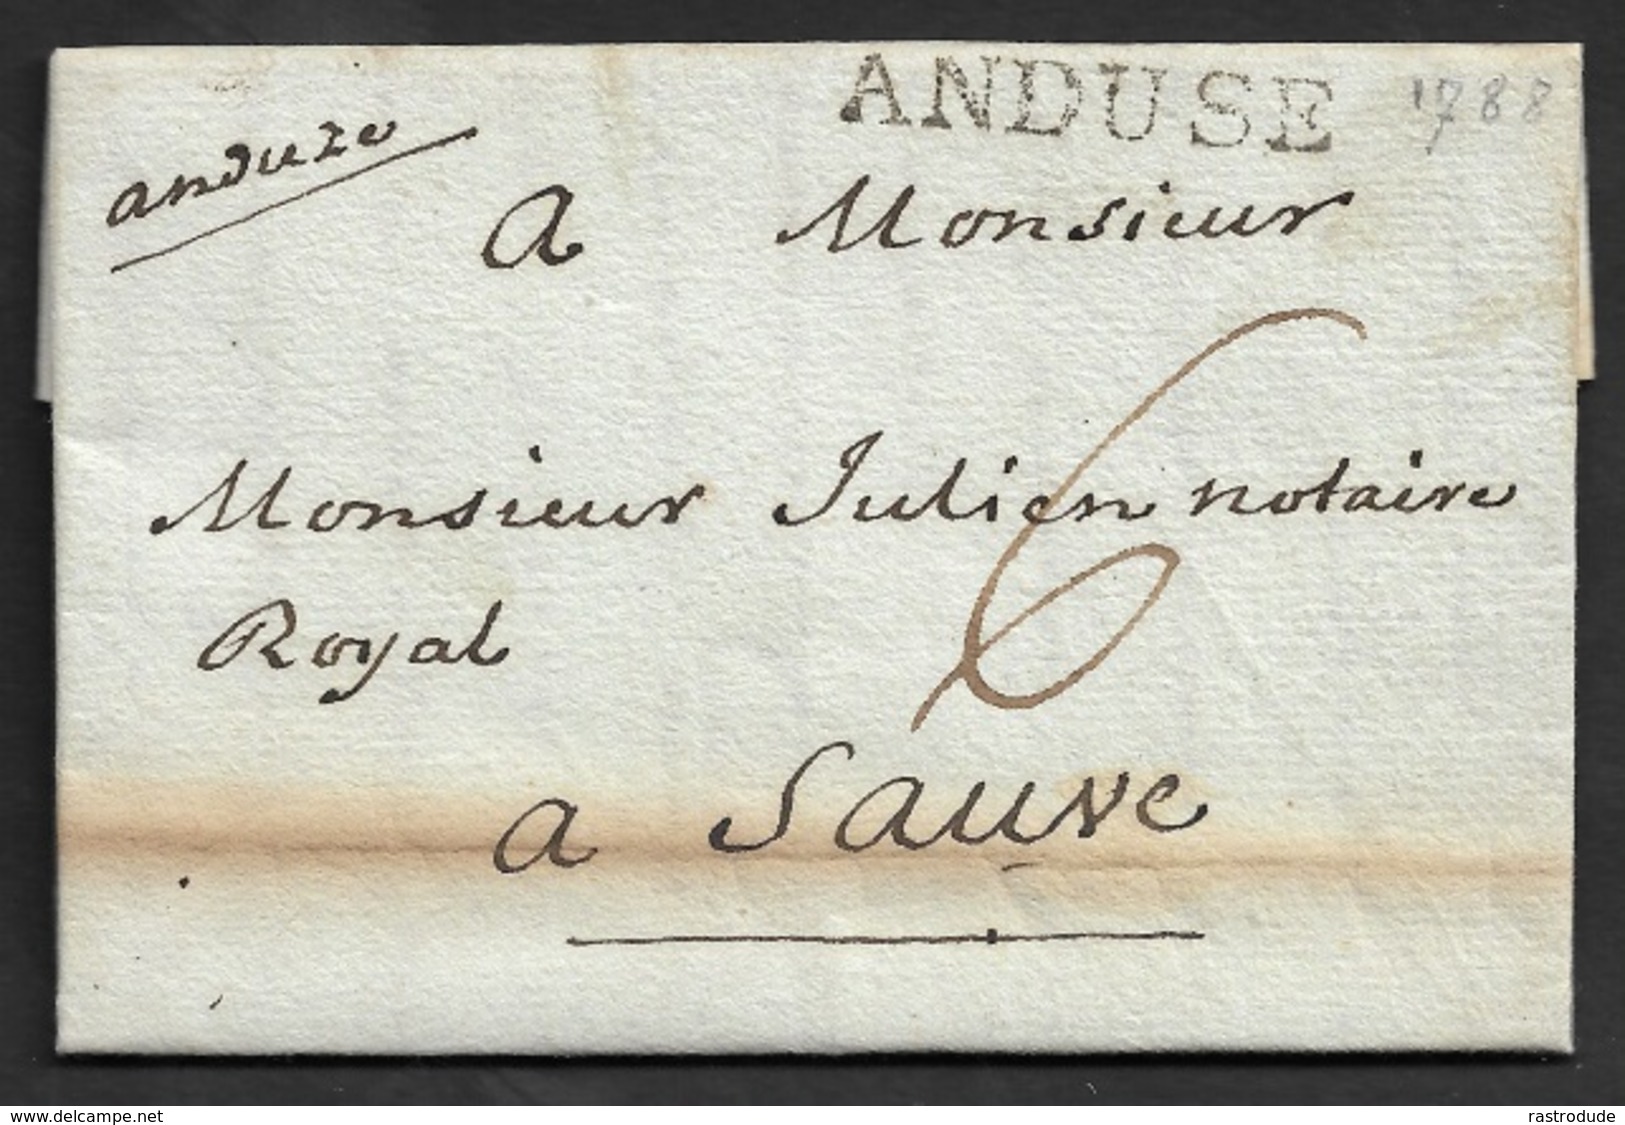 ANDUSE 1788
anduze
A Monsieur
Monsieur Julien notaire
Royal
6
a Sauve
delcampe.net
rastrodude